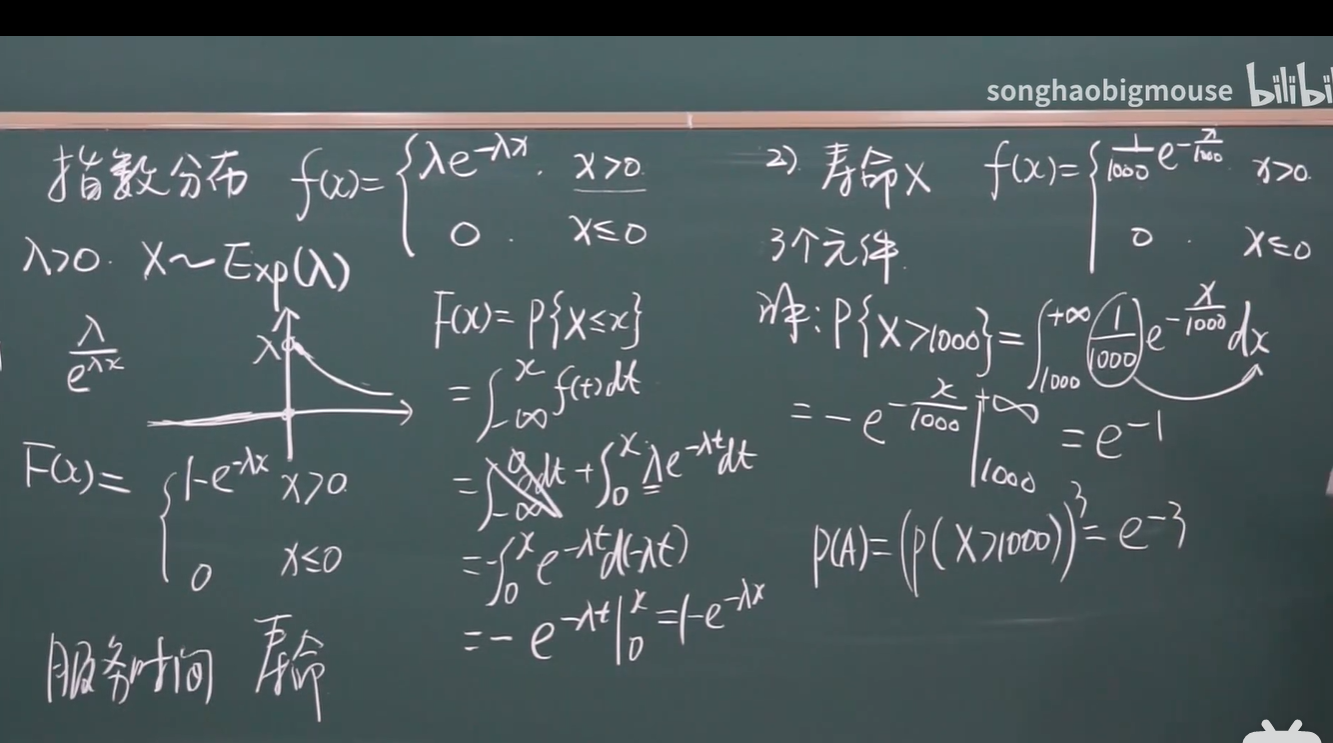 songhaobigmouse bilibi
指数分布 f(x)= { λe^{-λx} , x>0.
0 . x≤0
λ>0. X～Exp(λ)
λ/e^{λx}
λ
F(x)= { 1-e^{-λx} x>0.
0 x≤0
服务时间 寿命
F(x)= P{X≤x}
= ∫_{-∞}^{x} f(t)dt
= ∫_{-∞}^{0} 0dt + ∫_{0}^{x} λe^{-λt}dt
= -∫_{0}^{x} e^{-λt}d(-λt)
= -e^{-λt}|_{0}^{x} = 1-e^{-λx}
2) 寿命X f(x)= { 1/1000 e^{-x/1000} x>0.
0 . X≤0
3个元件.
: P{X>1000}= ∫_{1000}^{+∞} 1/1000 e^{-x/1000} dx
= -e^{-x/1000}|_{1000}^{+∞} = e^{-1}
P(A)= (P(X>1000))^3 = e^{-3}